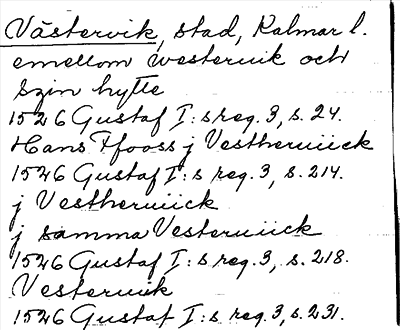 Västervik, stad, Kalmar l.
emellom westeruik och
Szin hytte
1526 Gustaf I:s reg. 3, s. 24.
Hans Ffooss j Vestheruiick
1526 Gustaf I:s reg. 3, s. 214.
j Vestheruiick
j samma Vesteruiick
1526 Gustaf I:s reg. 3, s. 218.
Vesteruik
1526 Gustaf I:s reg. 3, s. 231.